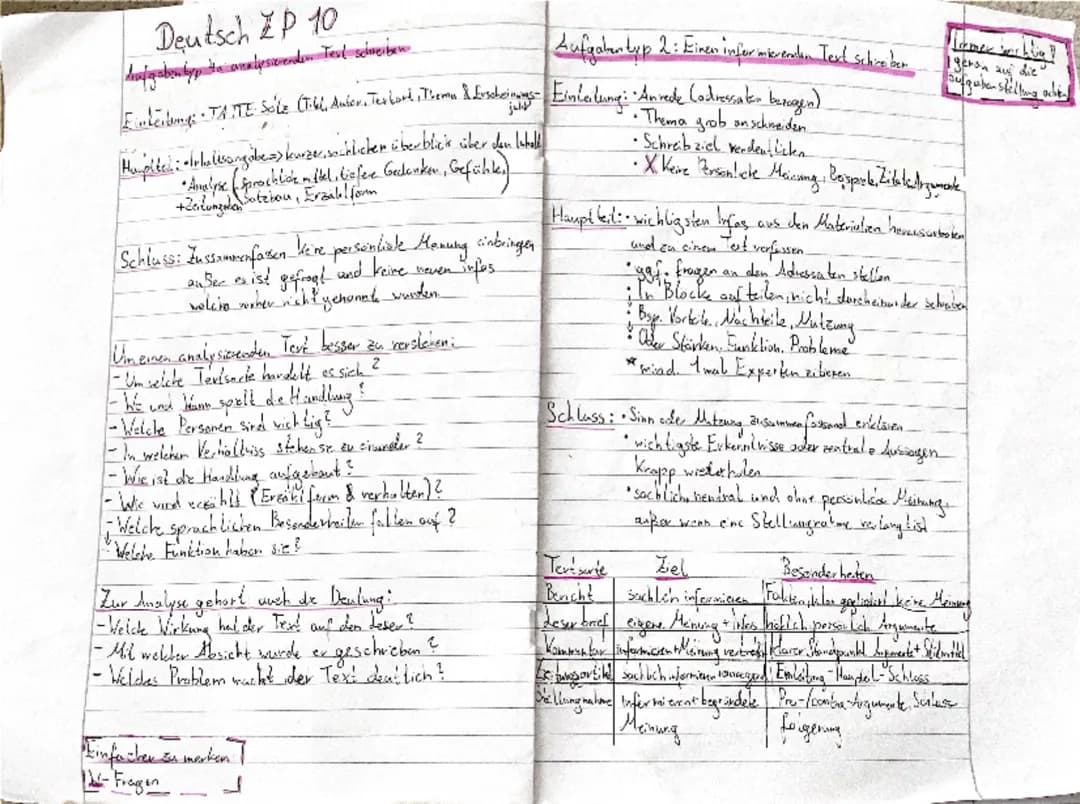 Deutsch ZP 10
Aufgabentyp 4a analysierenden Text schreiben
Einleitung: • TATTE-Satz (Titel, Autor, Textart, Thema & Erscheinungs-
jahr)
Hauptteil: • Inhaltsangabe => kurzer, sachlicher überblick über den Inhalt
• Analyse (sprachliche mittel, tiefere Gedanken, Gefühle,
+Zeilenangaben Satzbau, Erzählform)
Schluss: Zusammenfassen keine persönliche Meinung einbringen
außer es ist gefragt und keine neuen infos
welche vorher nicht genannt wurden
Um einen analysierenden Text besser zu verstehen:
- Um welche Textsorte handelt es sich?
- Wo und Wann spielt die Handlung?
- Welche Personen sind wichtig?
- In welchem Verhältniss stehen sie zu einander?
- Wie ist die Handlung aufgebaut?
- Wie wird erzählt (Erzählform & verhalten)?
- Welche sprachlichen Besonderheiten fallen auf?
↓ Welche Funktion haben sie?
Zur Analyse gehört auch die Deutung:
- Welche Wirkung hat der Text auf den Leser?
- Mit welcher Absicht wurde er geschrieben?
- Welches Problem macht der Text deutlich?
Einfacher zu merken
W-Fragen
Aufgabentyp 2: Einen informierenden Text schreiben
Immer wichtig!
genau auf die
aufgabenstellung achten
Einleitung: • Anrede (adressaten bezogen)
• Thema grob anschneiden
• Schreibziel verdeutlichen
• X Keine Persönliche Meinung, Beispiele, Zitate, Argumente
Hauptteil: • wichtigsten Infos aus den Materialien herausarbeiten
und zu einem Text verfassen
• ggf. fragen an den Adressaten stellen
• In Blöcke aufteilen, nicht durcheinander schreiben
• Bsp. Vorteile, Nachteile, Nutzung
• Oder Stärken, Funktion, Probleme
* mind. 1 mal Experten zitieren
Schluss: • Sinn oder Nutzung zusammenfassend erklären
• wichtigste Erkenntnisse oder zentrale Aussagen
Knapp wiederholen
• sachlich, neutral und ohne persönliche Meinung,
außer wenn eine Stellungnahme verlangt ist
Textsorte Ziel Besonderheiten
Bericht sachlich informieren Fakten, klar gegliedert, keine Meinung
Leserbrief eigene Meinung + infos höflich, persönlich, Argumente
Kommentar informieren + Meinung vertreten klarer Standpunkt, Argumente + Stilmittel
Zeitungsartikel sachlich informieren Einleitung-Hauptteil-Schluss
Stellungnahme Informieren + begründete Pro-/Contra-Argumente, Schluss
Meinung folgerung